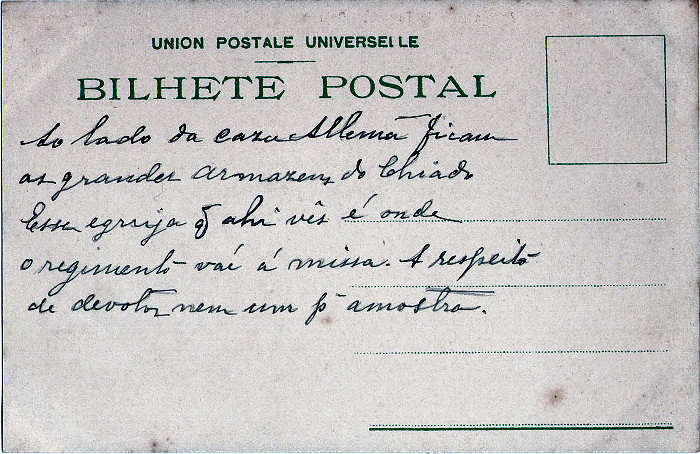 UNION POSTALE UNIVERSELLE
BILHETE POSTAL
Ao lado da casa Allemã ficam
os grandes armazens do Chiado
Essa egreija q̃ ahi vês é onde
o regimento vai á missa. A respeito
de devotos nem um p̃ amostra.